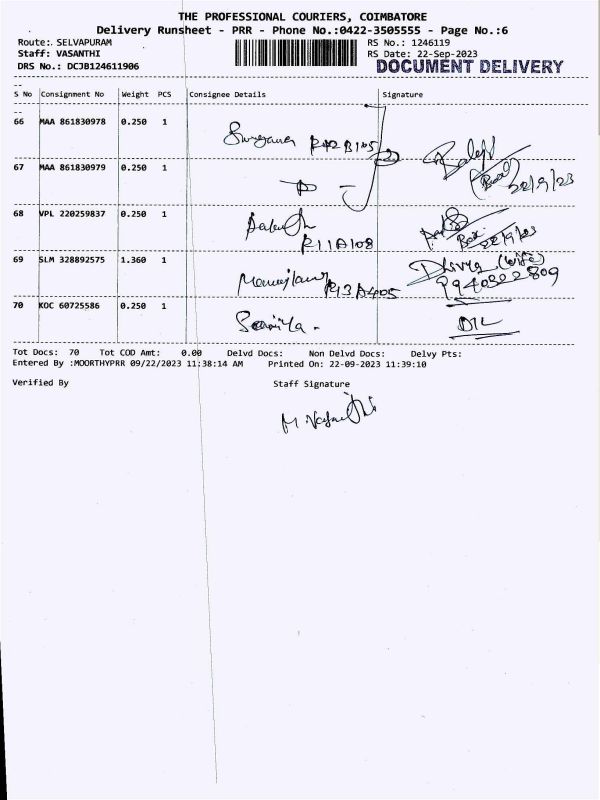 THE PROFESSIONAL COURIERS, COIMBATORE
Delivery Runsheet - PRR - Phone No.:0422-3505555 - Page No.:6
Route: SELVAPURAM
RS No.: 1246119
Staff: VASANTHI
RS Date: 22-Sep-2023
DRS No.: DCJB124611906
DOCUMENT DELIVERY
S No Consignment No Weight PCS Consignee Details Signature
66 MAA 861830978 0.250 1
67 MAA 861830979 0.250 1
22/9/23
68 VPL 220259837 0.250 1
R11A108
22/9/23
69 SLM 328892575 1.360 1
Dhivya (wife)
R13A405
70 KOC 60725586 0.250 1
Tot Docs: 70 Tot COD Amt: 0.00 Delvd Docs: Non Delvd Docs: Delvy Pts:
Entered By :MOORTHYPRR 09/22/2023 11:38:14 AM Printed On: 22-09-2023 11:39:10
Verified By Staff Signature